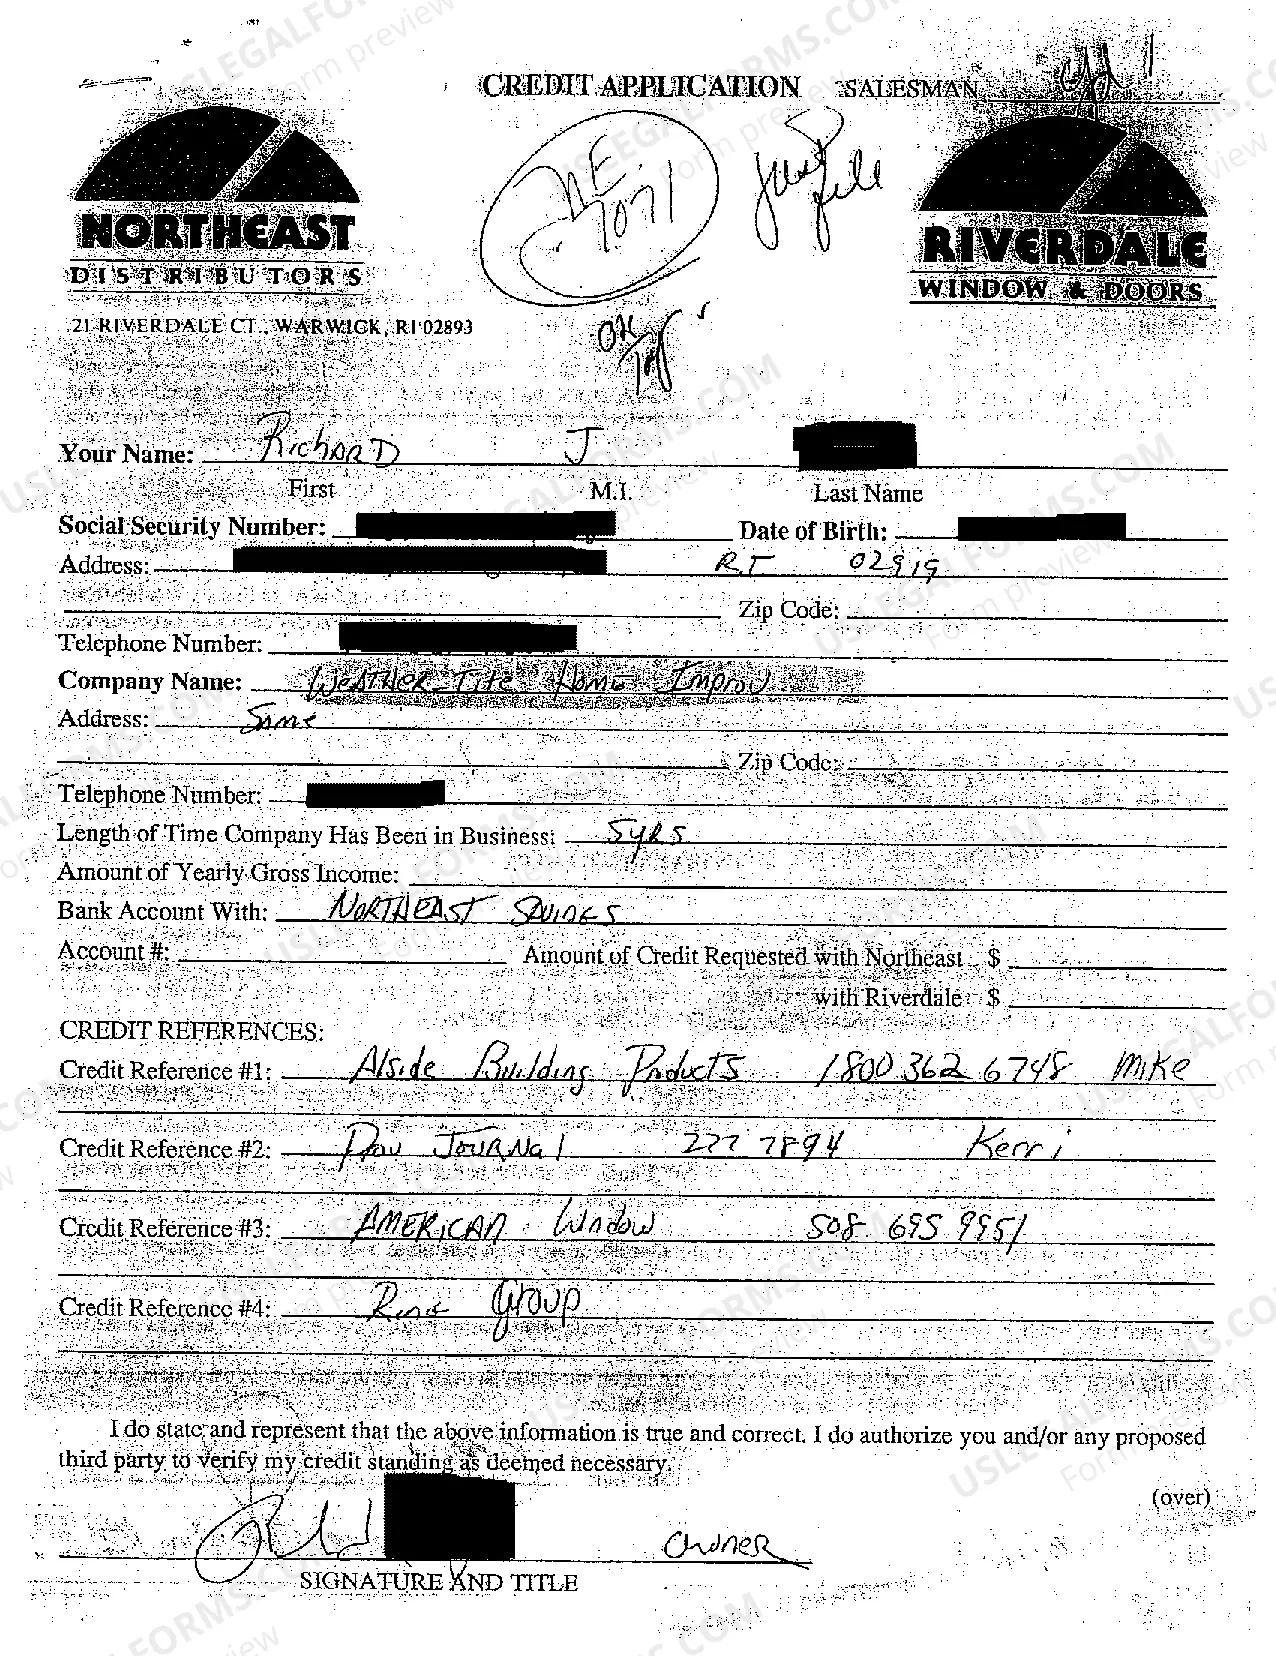 CREDIT APPLICATION SALESMAN
NE
7071
Just
file
NORTHEAST
DISTRIBUTORS
21 RIVERDALE CT., WARWICK, RI 02893
RIVERDALE
WINDOW & DOORS
OK
Your Name: RichARD J
First M.I. Last Name
Social Security Number: Date of Birth:
Address: R.I 02919
Zip Code:
Telephone Number:
Company Name: WEATHER-Tite Home Improv
Address: Same
Zip Code:
Telephone Number:
Length of Time Company Has Been in Business: 5yrs
Amount of Yearly Gross Income:
Bank Account With: NORTHEAST SAVINGS
Account #: Amount of Credit Requested with Northeast $
with Riverdale $
CREDIT REFERENCES:
Credit Reference #1: Alside Building Products 1800 362 6748 Mike
Credit Reference #2: Prov JOURNAL 277 7894 Kerri
Credit Reference #3: AMERICAN Window 508 695 9951
Credit Reference #4: Group
I do state and represent that the above information is true and correct. I do authorize you and/or any proposed
third party to verify my credit standing as deemed necessary.
(over)
Owner
SIGNATURE AND TITLE
USLEGALFORMS.COM
Form preview